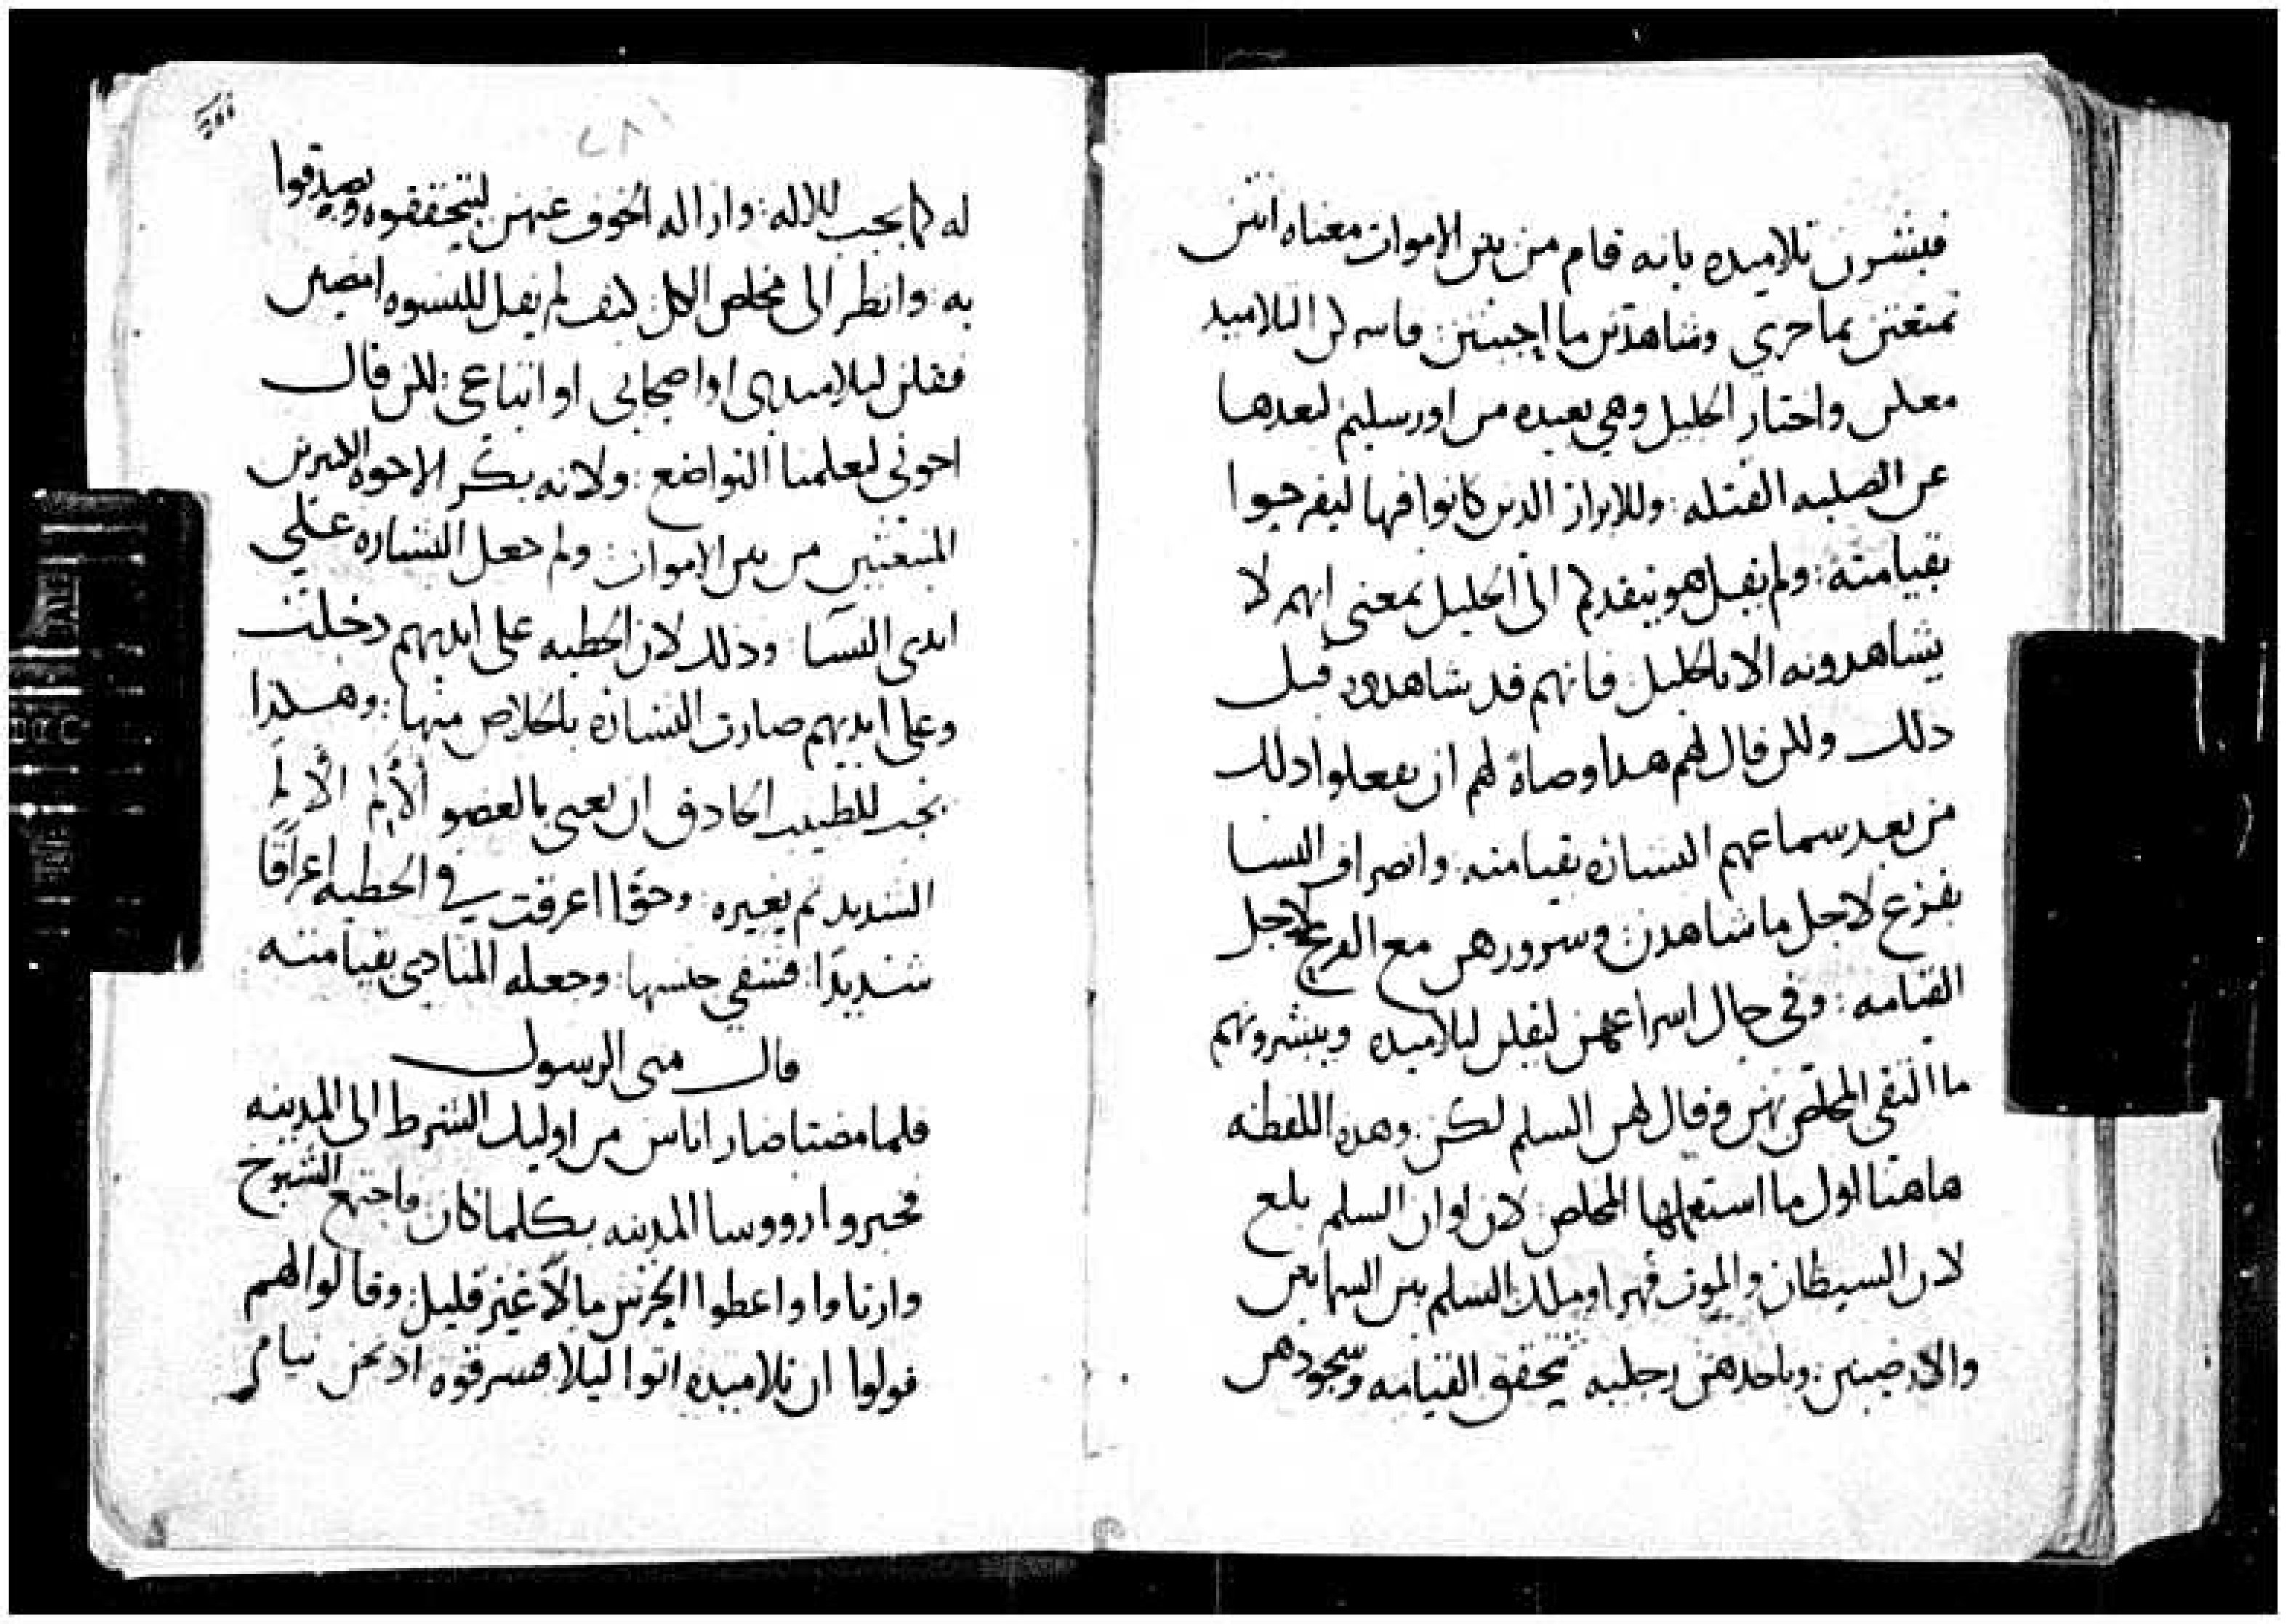 فبشرن تلاميده بانه قام من بين الاموات معناه انتن
تمتعتن بما جري وشاهدتن ما احببتن فاسركن التلاميد
معكن واختار الجليل وهي بعيده من اورسليم لبعدها
عن الصلبه القتله وللابرار الدين كانوا فيها ليفرحوا
بقيامته ولم يقل هو يتقدكم الى الجليل بمعنى انهم لا
يشاهدونه الا بالجليل فانهم قد شاهدوه قبل
دلك ولكن قال لهم هدا وصاة لهم ان يفعلوا دلك
من بعد سماعهم البشاره بقيامته وانصراف النسا
بفزع لاجل ما شاهدن وسرورهن مع الفزع لاجل
القيامه وفي حال اسراعهن ليقلن لتلاميده ويبشرونهم
ما التقى المخلص بهن وقال لهن السلم لكن وهده اللفظه
هاهنا اول ما استعملها المخلص لان اوان السلم بلغ
لان السيطان والموت قهرا وملك السلم بين السمايين
والارضيين وباخدهن رجليه تتحقق القيامه وسجودهن
٢٨١
له كما يجب للاله وازاله الخوف عنهن ليتحققوه ويصدقوا
به وانظر الى مخلص الكل كيف لم يقل للنسوه امضين
فقلن لتلاميدي او اصحابي او اتباعي لكن قال
اخوتي ليعلمنا التواضع ولانه بكر الاخوه الكبيرين
المنبعثين من بين الاموات ولم جعل البشاره على
ايدي النسا ودلك لان الخطيه على ايديهم دخلت
وعلى ايديهم صارت البشاره بالخلاص منها وهكذا
يجب للطبيب الحادق ان يعنى بالعضو الألم الألم
الشديد ثم بغيره وحقا اعرقت في الخطيه اعراقا
شديدا فشفي جنسها وجعله المنادي بقيامته
قال متى الرسول
فلما مضتا صار اناس من اوليك الشرط الى المدينه
فخبروا رووسا المدينه بكلما كان فاجتمع الشيوخ
وارتاوا واعطوا الحرس مالا غير قليل وقالوا لهم
قولوا ان تلاميده اتوا ليلا فسرقوه اد نحن نيام